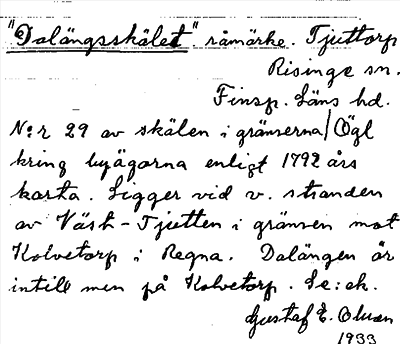 "Dalängsskälet" råmärke. Tjuttorp
Risinge sn.
Finsp. Läns hd.
N:r 29 av skälen i gränserna/Ögl
kring byägorna enligt 1792 års
karta. Ligger vid v. stranden
av Väst-Tjutten i gränsen mot
Kolvetorp i Regna. Dalängen är
intill men på Kolvetorp. Se: ek.
Gustaf E. Olsson
1933